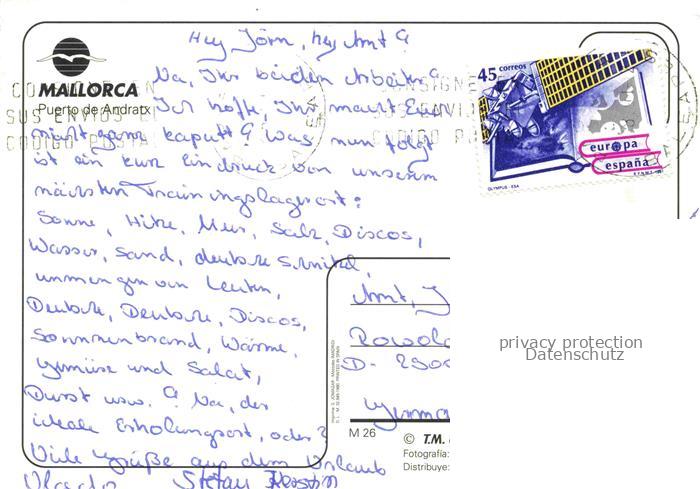 Hey Jörn, hey Amt !
Na, Ihr beiden Arbeiter !
Ich hoffe, Ihr macht Euch
nicht ganz kaputt ! Was nun folgt
ist ein kurzer Eindruck von unserem
nächsten Trainingslagerort:
Sonne, Hitze, Meer, Salz, Discos,
Wasser, Sand, deutsche Schnitzel,
unmengen von Leuten,
Deutsche, Deutsche, Discos,
Sonnenbrand, Wärme,
Gemüse und Salat,
Durst usw. ! Na, der
ideale Erholungsort, oder?
Viele Grüße aus dem Urlaub
Stefan
MALLORCA
Puerto de Andratx
CONSIGNE EN
SUS ENVIOS EL
CODIGO POSTAL
45 correos
europa
españa
OLYMPUS - ESA
Amt, J
D-
Germa
M 26
© T.M.
Fotografía:
Distribuye:
privacy protection
Datenschutz